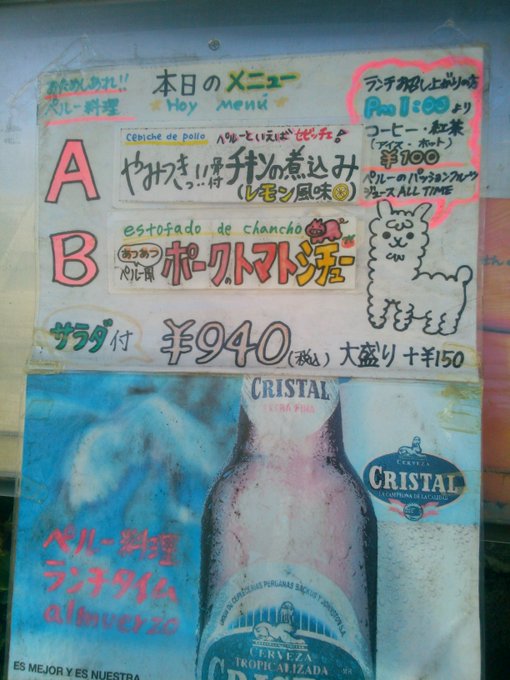 おためしあれ!!
ペルー料理
本日のメニュー
Hoy menú
ランチお召し上がりの方
Pm 1:00より
コーヒー・紅茶
(アイス・ホット)
¥100
ペルーのパッションフルーツ
ジュース ALL TIME
A
cebiche de pollo
ペルーといえばセビッチェ!
やみつきっ!!骨付チキンの煮込み
(レモン風味)
B
estofado de chancho
あつあつ
ペルー風
ポークのトマトシチュー
サラダ付
¥940(税込)
大盛り+¥150
CRISTAL
CERVEZA
CRISTAL
LA CAMPEONA DE LA CALIDAD
ペルー料理
ランチタイム
almuerzo
CERVEZA
TROPICALIZADA
CRISTAL
ES MEJOR Y ES NUESTRA